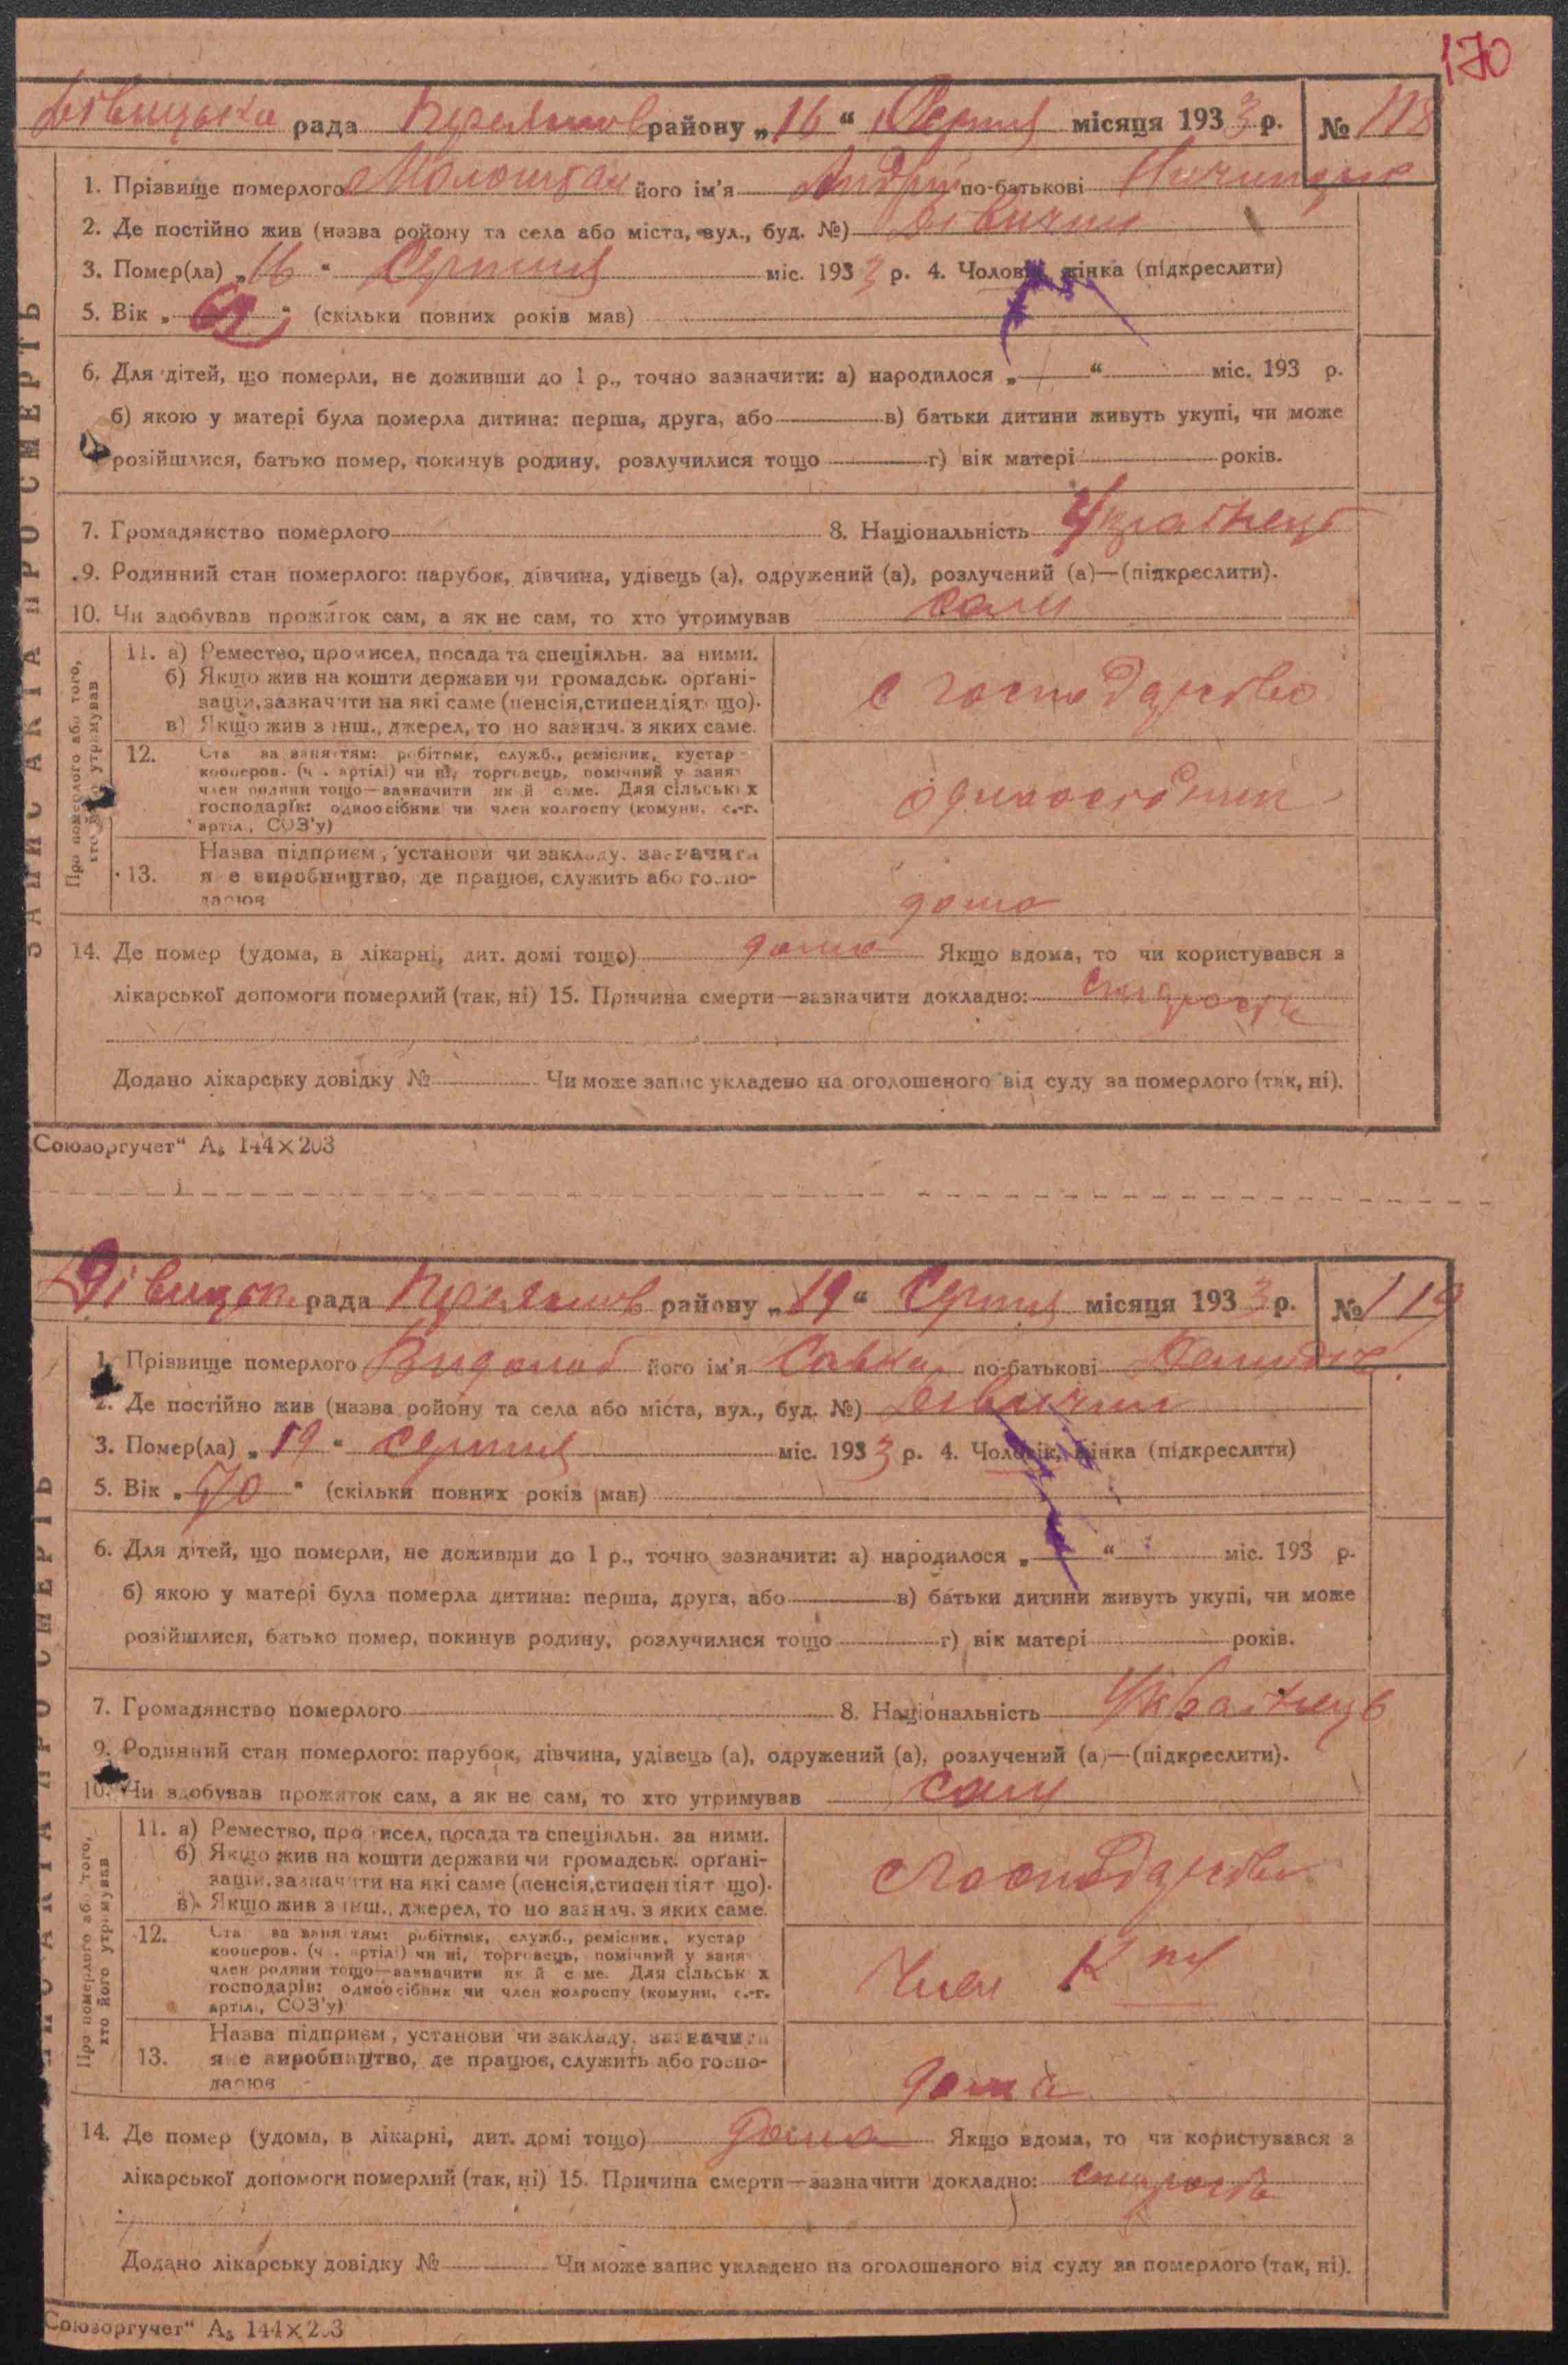 170
Дівицька рада Переяслов району „16“ Серпня місяця 1933 р. № 118
1. Прізвище померлого його ім'я Андрій по-батькові
2. Де постійно жив (назва ройону та села або міста, вул., буд. №) Дівички
3. Помер(ла) „16“ Серпня міс. 1933 р. 4. Чоловік, жінка (підкреслити)
5. Вік „ “ (скільки повних років мав)
6. Для дітей, що померли, не доживши до 1 р., точно зазначити: а) народилося „ “ міс. 193 р.
б) якою у матері була померла дитина: перша, друга, або в) батьки дитини живуть укупі, чи може
розійшлися, батько помер, покинув родину, розлучилися тощо г) вік матері років.
7. Громадянство померлого 8. Національність Українець
9. Родинний стан померлого: парубок, дівчина, удівець (а), одружений (а), розлучений (а)—(підкреслити).
10. Чи здобував прожиток сам, а як не сам, то хто утримував сам
ЗАПИС АКТА ПРО СМЕРТЬ
Про померлого або того, хто його утримував
11. а) Ремество, промисел, посада та спеціяльн. за ними.
б) Якщо жив на кошти держави чи громадськ. орґані-
зацій, зазначити на які саме (пенсія, стипендіят що).
в) Якщо жив з інш., джерел, то но зазнач. з яких саме.
с господарство
12. Ста за заняттям: робітник, служб., ремісник, кустар
кооперов. (ч . артілі) чи ні, торговець, помічний у заня
член родини тощо—зазначити як й саме. Для сільськ х
господарів: одноосібник чи член колгоспу (комуни, с.-г.
артіл., СОЗ'у)
одноосібник
13. Назва підприєм , установи чи закладу, зазначити
я е виробництво, де працює, служить або госпо-
дарює
дома
14. Де помер (удома, в лікарні, дит. домі тощо) дома Якщо вдома, то чи користувався з
лікарської допомоги померлий (так, ні) 15. Причина смерти—зазначити докладно: старость
Додано лікарську довідку № Чи може запис укладено на оголошеного від суду за померлого (так, ні).
Союзоргучет“ А₅ 144×203
Дівицьк рада Переяслов району „19“ Серпня місяця 1933 р. № 119
1. Прізвище померлого його ім'я Савка по-батькові
2. Де постійно жив (назва ройону та села або міста, вул., буд. №) Дівички
3. Помер(ла) „19“ серпня міс. 1933 р. 4. Чоловік, жінка (підкреслити)
5. Вік „70“ (скільки повних років мав)
6. Для дітей, що померли, не доживши до 1 р., точно зазначити: а) народилося „ “ міс. 193 р.
б) якою у матері була померла дитина: перша, друга, або в) батьки дитини живуть укупі, чи може
розійшлися, батько помер, покинув родину, розлучилися тощо г) вік матері років.
7. Громадянство померлого 8. Національність Українець
9. Родинний стан померлого: парубок, дівчина, удівець (а), одружений (а), розлучений (а)—(підкреслити).
10. Чи здобував прожиток сам, а як не сам, то хто утримував сам
ЗАПИС АКТА ПРО СМЕРТЬ
Про померлого або того, хто його утримував
11. а) Ремество, про исел, посада та спеціяльн. за ними.
б) Якщо жив на кошти держави чи громадськ. орґані-
зацій, зазначити на які саме (пенсія, стипендіят що).
в) Якщо жив з інш., джерел, то но зазнач. з яких саме.
с господарство
12. Ста за заняттям: робітник, служб., ремісник, кустар
кооперов. (ч . артілі) чи ні, торговець, помічний у заня
член родини тощо—зазначити як й саме. Для сільськ х
господарів: одноосібник чи член колгоспу (комуни, с.-г.
артіл., СОЗ'у)
Член
13. Назва підприєм , установи чи закладу, зазначити
я е виробництво, де працює, служить або госпо-
дарює
дома
14. Де помер (удома, в лікарні, дит. домі тощо) дома Якщо вдома, то чи користувався з
лікарської допомоги померлий (так, ні) 15. Причина смерти—зазначити докладно: старость
Додано лікарську довідку № Чи може запис укладено на оголошеного від суду за померлого (так, ні).
Союзоргучет“ А₅ 144×2 3